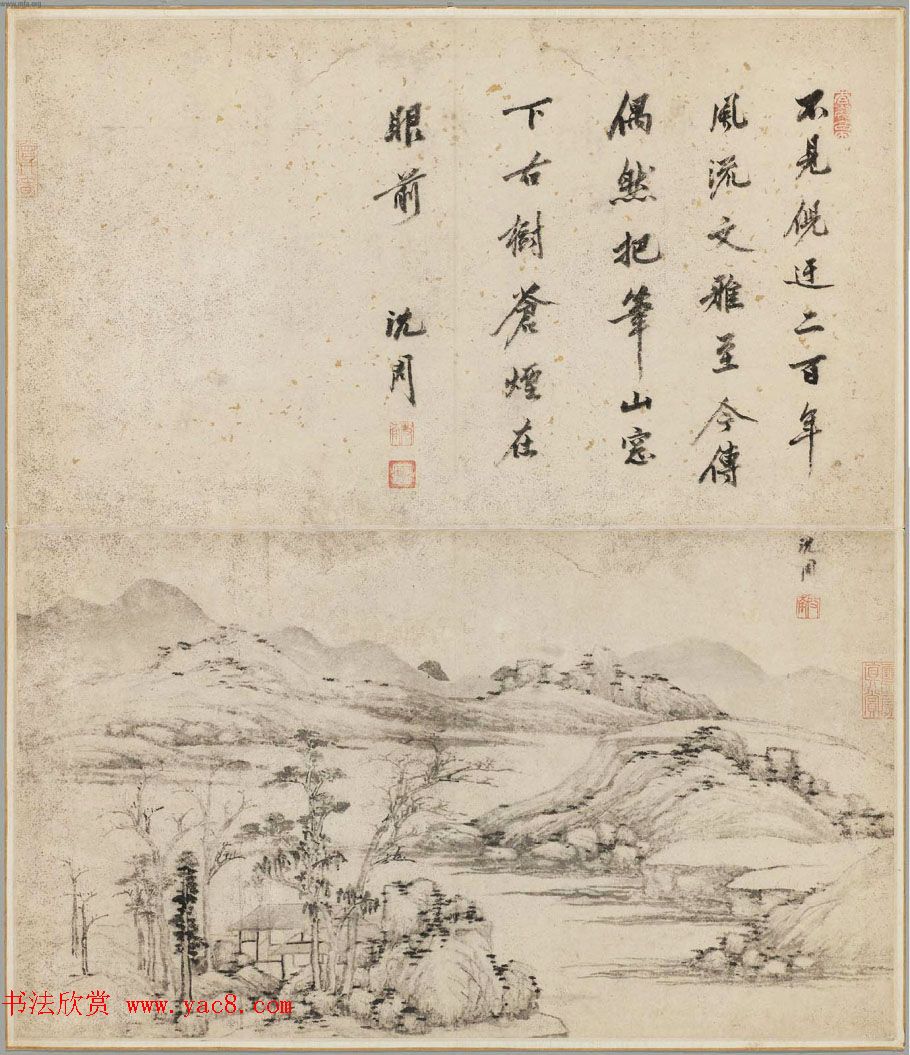 不見倪迂二百年
風流文雅至今傳
偶然把筆山窓
下古樹蒼煙在
眼前 沈周
沈周
书法欣赏 www.yac8.com
www.mfa.org